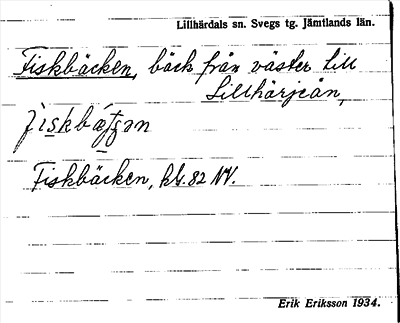 Lillhärdals sn. Svegs tg. Jämtlands län.
Fiskbäcken, bäck från väster till
Lillhärjeån,
Fiskbäcken, kbl. 82 NV.
Erik Eriksson 1934.